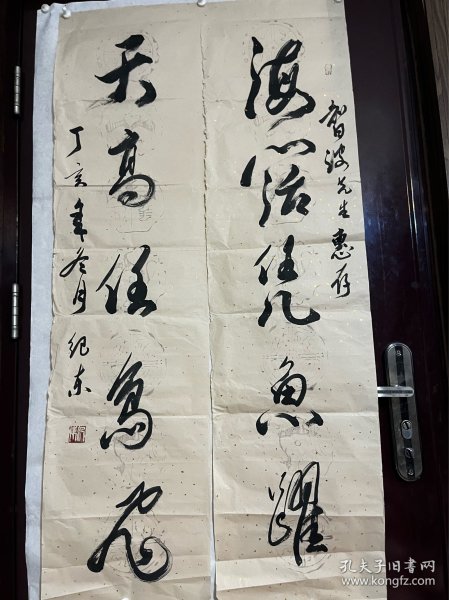 智波先生惠存
海闊凭魚躍
天高任鳥飛
丁亥年冬月 纪东
孔夫子旧书网
www.kongfz.com